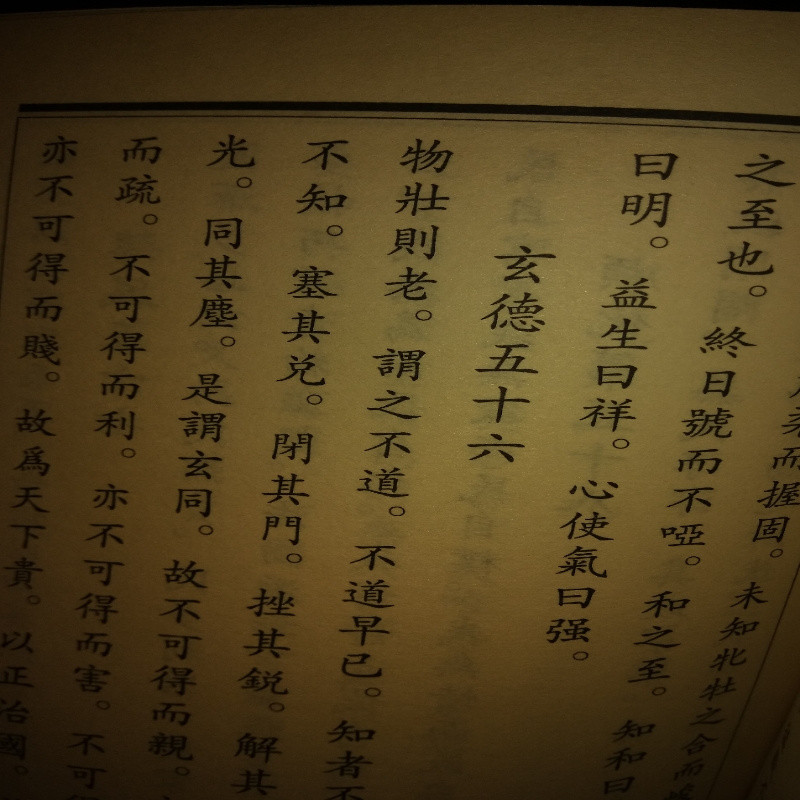 柔而握固。未知牝牡之合而
之至也。終日號而不啞。和之至。知和曰
曰明。益生曰祥。心使氣曰强。
玄德五十六
物壯則老。謂之不道。不道早已。知者不
不知。塞其兑。閉其門。挫其鋭。解其
光。同其塵。是謂玄同。故不可得而親。
而疏。不可得而利。亦不可得而害。不可
亦不可得而賤。故爲天下貴。以正治國。